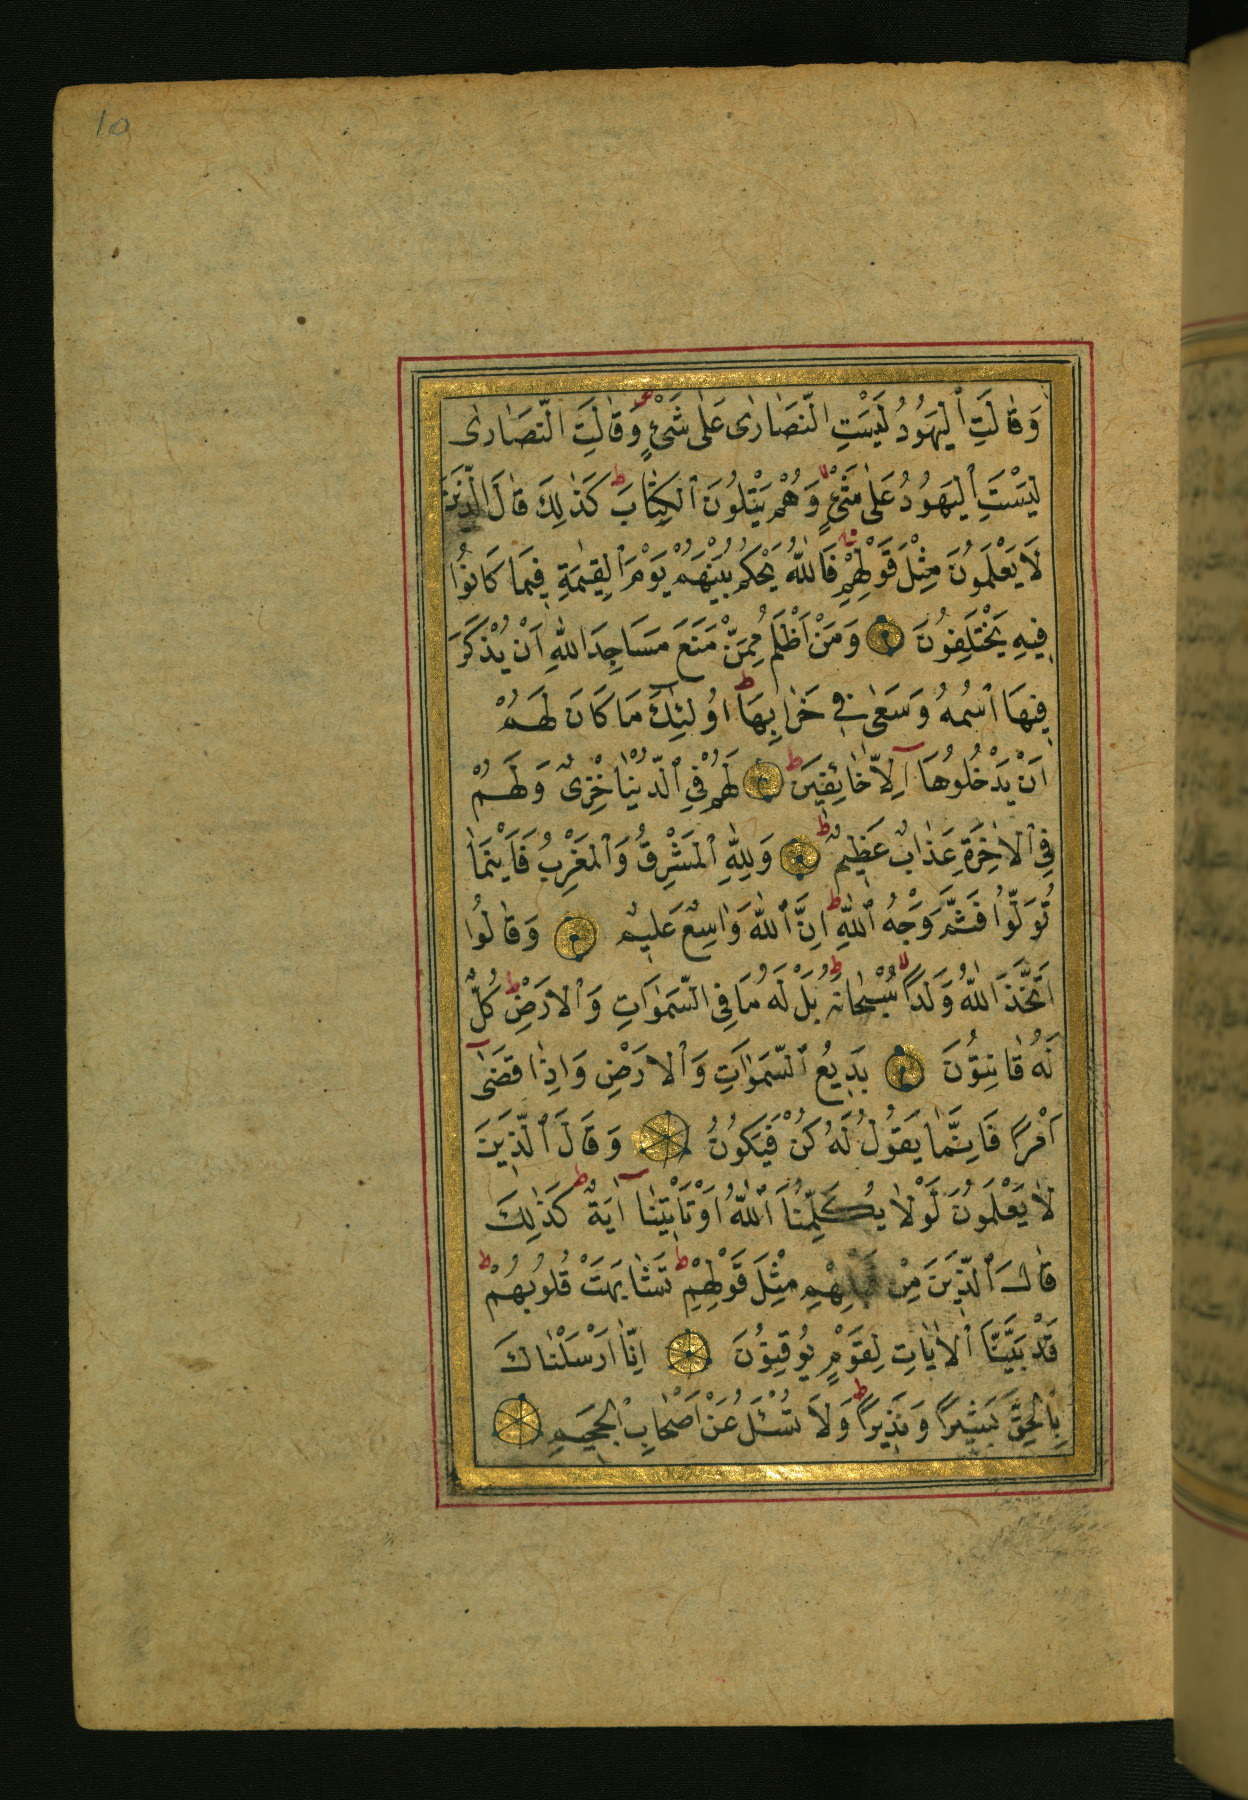 10
وَقَالَتِ ٱلْيَهُودُ لَيْسَتِ النَّصَارٰى عَلٰى شَیْءٍ وَقَالَتِ النَّصَارٰى
لَيْسَتِ ٱلْيَهُودُ عَلٰى شَیْءٍ وَهُمْ يَتْلُونَ ٱلْكِتَابَ كَذٰلِكَ قَالَ الَّذِينَ
لَا يَعْلَمُونَ مِثْلَ قَوْلِهِمْ فَاللّٰهُ يَحْكُمُ بَيْنَهُمْ يَوْمَ ٱلْقِيٰمَةِ فِيمَا كَانُوا
فِيهِ يَخْتَلِفُونَ وَمَنْ اَظْلَمُ مِمَّنْ مَنَعَ مَسَاجِدَ اللّٰهِ اَنْ يُذْكَرَ
فِيهَا ٱسْمُهُ وَسَعٰى فِی خَرَابِهَا ط اُولٰئِكَ مَا كَانَ لَهُمْ
اَنْ يَدْخُلُوهَا اِلَّا خَائِفِينَ ط لَهُمْ فِی ٱلدُّنْيَا خِزْیٌ وَلَهُمْ
فِی ٱلْاٰخِرَةِ عَذَابٌ عَظِيمٌ ط وَلِلّٰهِ ٱلْمَشْرِقُ وَٱلْمَغْرِبُ فَاَيْنَمَا
تُوَلُّوا فَثَمَّ وَجْهُ ٱللّٰهِ ط اِنَّ ٱللّٰهَ وَاسِعٌ عَلِيمٌ وَقَالُوا
اتَّخَذَ اللّٰهُ وَلَدًا لا سُبْحَانَهُ ط بَلْ لَهُ مَا فِی السَّمٰوَاتِ وَٱلْاَرْضِ ط كُلٌّ
لَهُ قَانِتُونَ بَدِيعُ ٱلسَّمٰوَاتِ وَٱلْاَرْضِ وَاِذَا قَضٰى
اَمْرًا فَاِنَّمَا يَقُولُ لَهُ كُنْ فَيَكُونُ وَقَالَ ٱلَّذِينَ
لَا يَعْلَمُونَ لَوْلَا يُكَلِّمُنَا ٱللّٰهُ اَوْ تَأْتِينَا اٰيَةٌ ط كَذٰلِكَ
قَالَ ٱلَّذِينَ مِنْ قَبْلِهِمْ مِثْلَ قَوْلِهِمْ ط تَشَابَهَتْ قُلُوبُهُمْ ط
قَدْ بَيَّنَّا ٱلْاٰيَاتِ لِقَوْمٍ يُوقِنُونَ اِنَّا اَرْسَلْنَاكَ
بِالْحَقِّ بَشِيرًا وَنَذِيرًا ط وَلَا تُسْئَلُ عَنْ اَصْحَابِ ٱلْجَحِيمِ